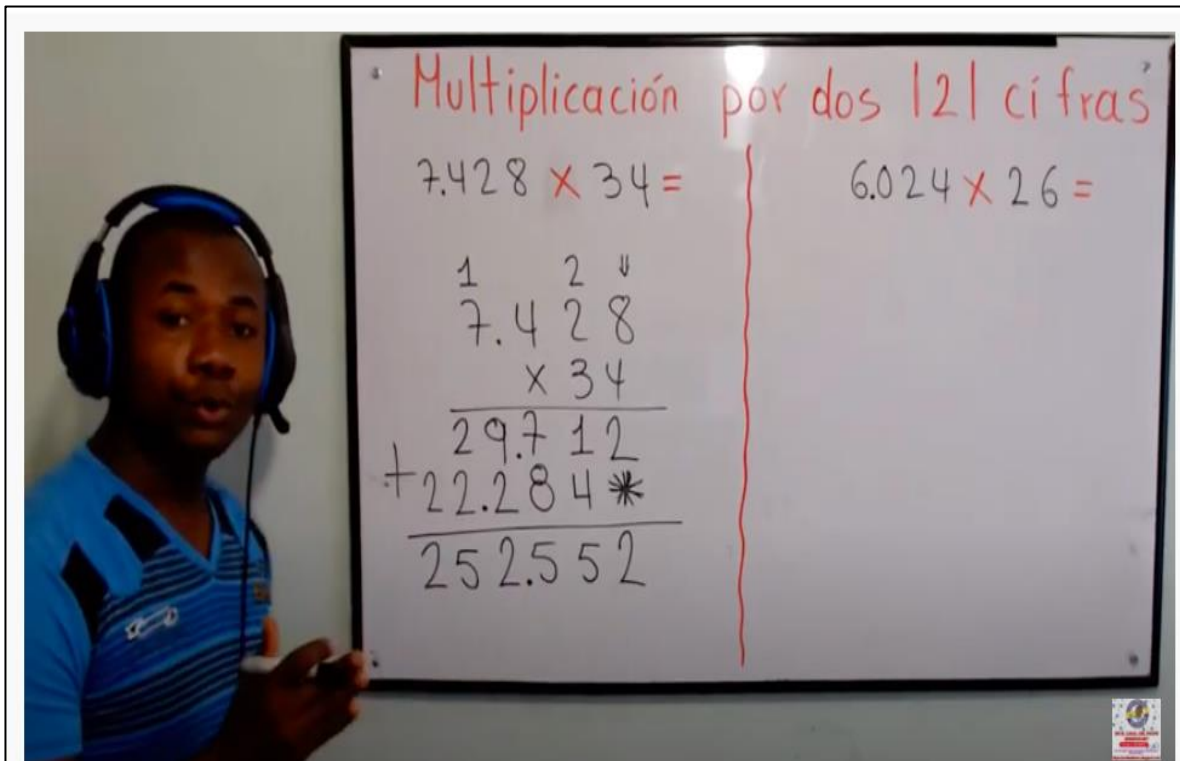 Multiplicación por dos |2| cifras
7.428 x 34 =
1 2 ⇓
7.428
x 34
29.712
+22.284*
252.552
6.024 x 26 =